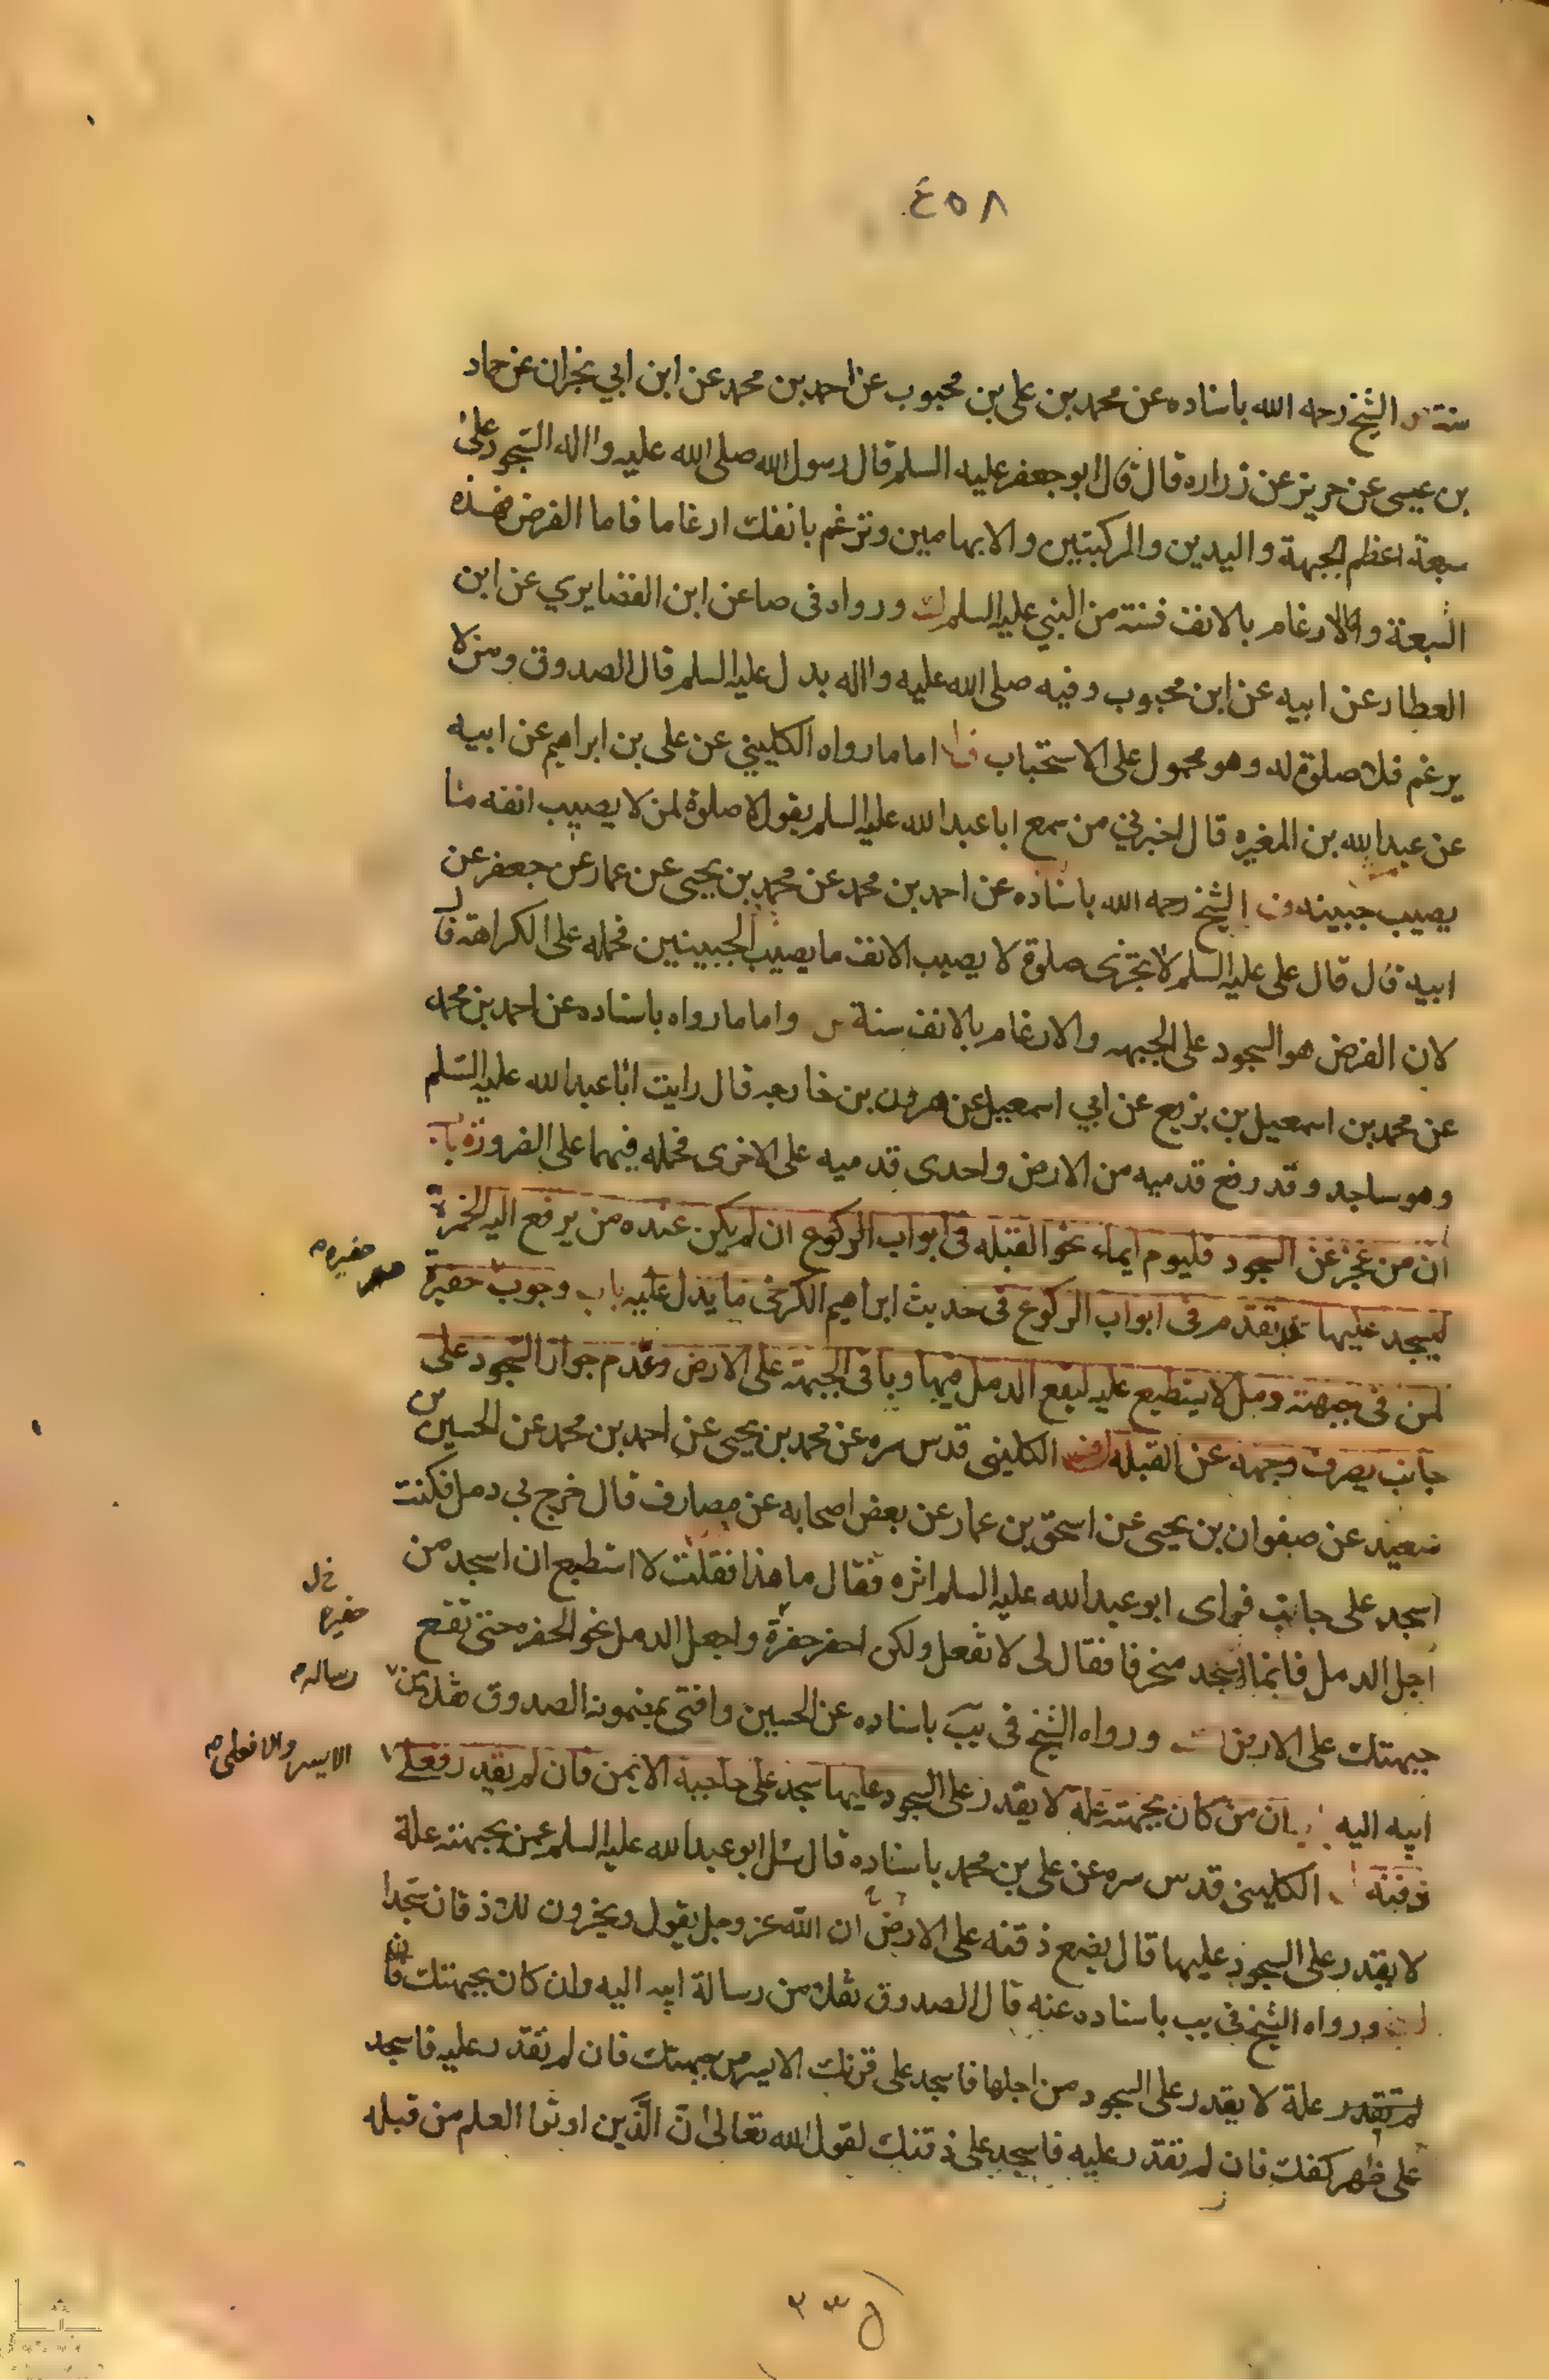 ٤٥٨
سنة الشيخ رحمه الله باسناده عن محمد بن علي بن محبوب عن احمد بن محمد عن ابن ابي نجران عن حماد
بن عيسى عن حريز عن زراره قال قال ابو جعفر عليه السلم قال رسول الله صلى الله عليه واله السجود على
سبعة اعظم الجبهة واليدين والركبتين والابهامين وترغم بانفك ارغاما فاما الفرض فهذه
السبعة واما الارغام بالانف فسنة من النبي عليه السلم ورواه في صا عن ابن الغضايري عن ابن
العطار عن ابيه عن ابن محبوب وفيه صلى الله عليه واله بدل عليه السلم قال الصدوق ومن لا
يرغم فلا صلوة له وهو محمول على الاستحباب اما ما رواه الكليني عن علي بن ابراهيم عن ابيه
عن عبد الله بن المغيره قال اخبرني من سمع ابا عبد الله عليه السلم يقول لا صلوة لمن لا يصيب انفه ما
يصيب جبينه الشيخ رحمه الله باسناده عن احمد بن محمد عن محمد بن يحيى عن عمار عن جعفر عن
ابيه قال قال علي عليه السلم لا تجزى صلوة لا يصيب الانف ما يصيب الجبينين فحمله على الكراهة قال
لان الفرض هو السجود على الجبهه والارغام بالانف سنة واما ما رواه باسناده عن احمد بن محمد
عن محمد بن اسمعيل بن بزيع عن ابي اسمعيل عن هرون بن خارجه قال رايت ابا عبد الله عليه السلم
وهو ساجد وقد رفع قدميه من الارض واحدى قدميه على الاخرى فحمله فيهما على الضرورة باب
ان من عجز عن السجود فليوم ايماء نحو القبله في ابواب الركوع ان لم يكن عنده من يرفع اليه الخمرة
ليسجد عليها تقدم في ابواب الركوع في حديث ابراهيم الكرخى ما يدل عليه باب وجوب حفيرة
حفيره م
لمن في جبهته دمل لا يستطيع عليه ليقع الدمل فيها وباقي الجبهة على الارض وعدم جواز السجود على
جانب يصرف وجهه عن القبله الكليني قدس سره عن محمد بن يحيى عن احمد بن محمد عن الحسين بن
سعيد عن صفوان بن يحيى عن اسحق بن عمار عن بعض اصحابه عن مصارف قال خرج بي دمل فكنت
اسجد على جانب فراى ابو عبد الله عليه السلم اثره فقال ما هذا فقلت لا استطيع ان اسجد من
اجل الدمل فانما اسجد منحرفا فقال لى لا تفعل ولكن احفر حفرة واجعل الدمل نحو الحفره حتى تقع
خ ل
حفيره
جبهتك على الارض ورواه الشيخ في يب باسناده عن الحسين وافتى بمضمونه الصدوق نقلا عن
رساله م
ابيه اليه ان من كان بجبهته علة لا يقدر على السجود عليها سجد على حاجبه الايمن فان لم يقدر فعلى
الايسر والا فعلى م
ذقنه الكليني قدس سره عن علي بن محمد باسناده قال سئل ابو عبد الله عليه السلم عمن بجبهته علة
لا يقدر على السجود عليها قال يضع ذقنه على الارض ان الله عز وجل يقول ويخرون للاذقان سجدا
ورواه الشيخ في يب باسناده عنه قال الصدوق نقلا من رسالة ابيه اليه وان كان بجبهتك
لم تقدر علة لا يقدر على السجود من اجلها فاسجد على قرنك الايسر من جبهتك فان لم تقدر عليه فاسجد
على ظهر كفك فان لم تقدر عليه فاسجد على ذقنك لقول الله تعالى ان الذين اوتوا العلم من قبله